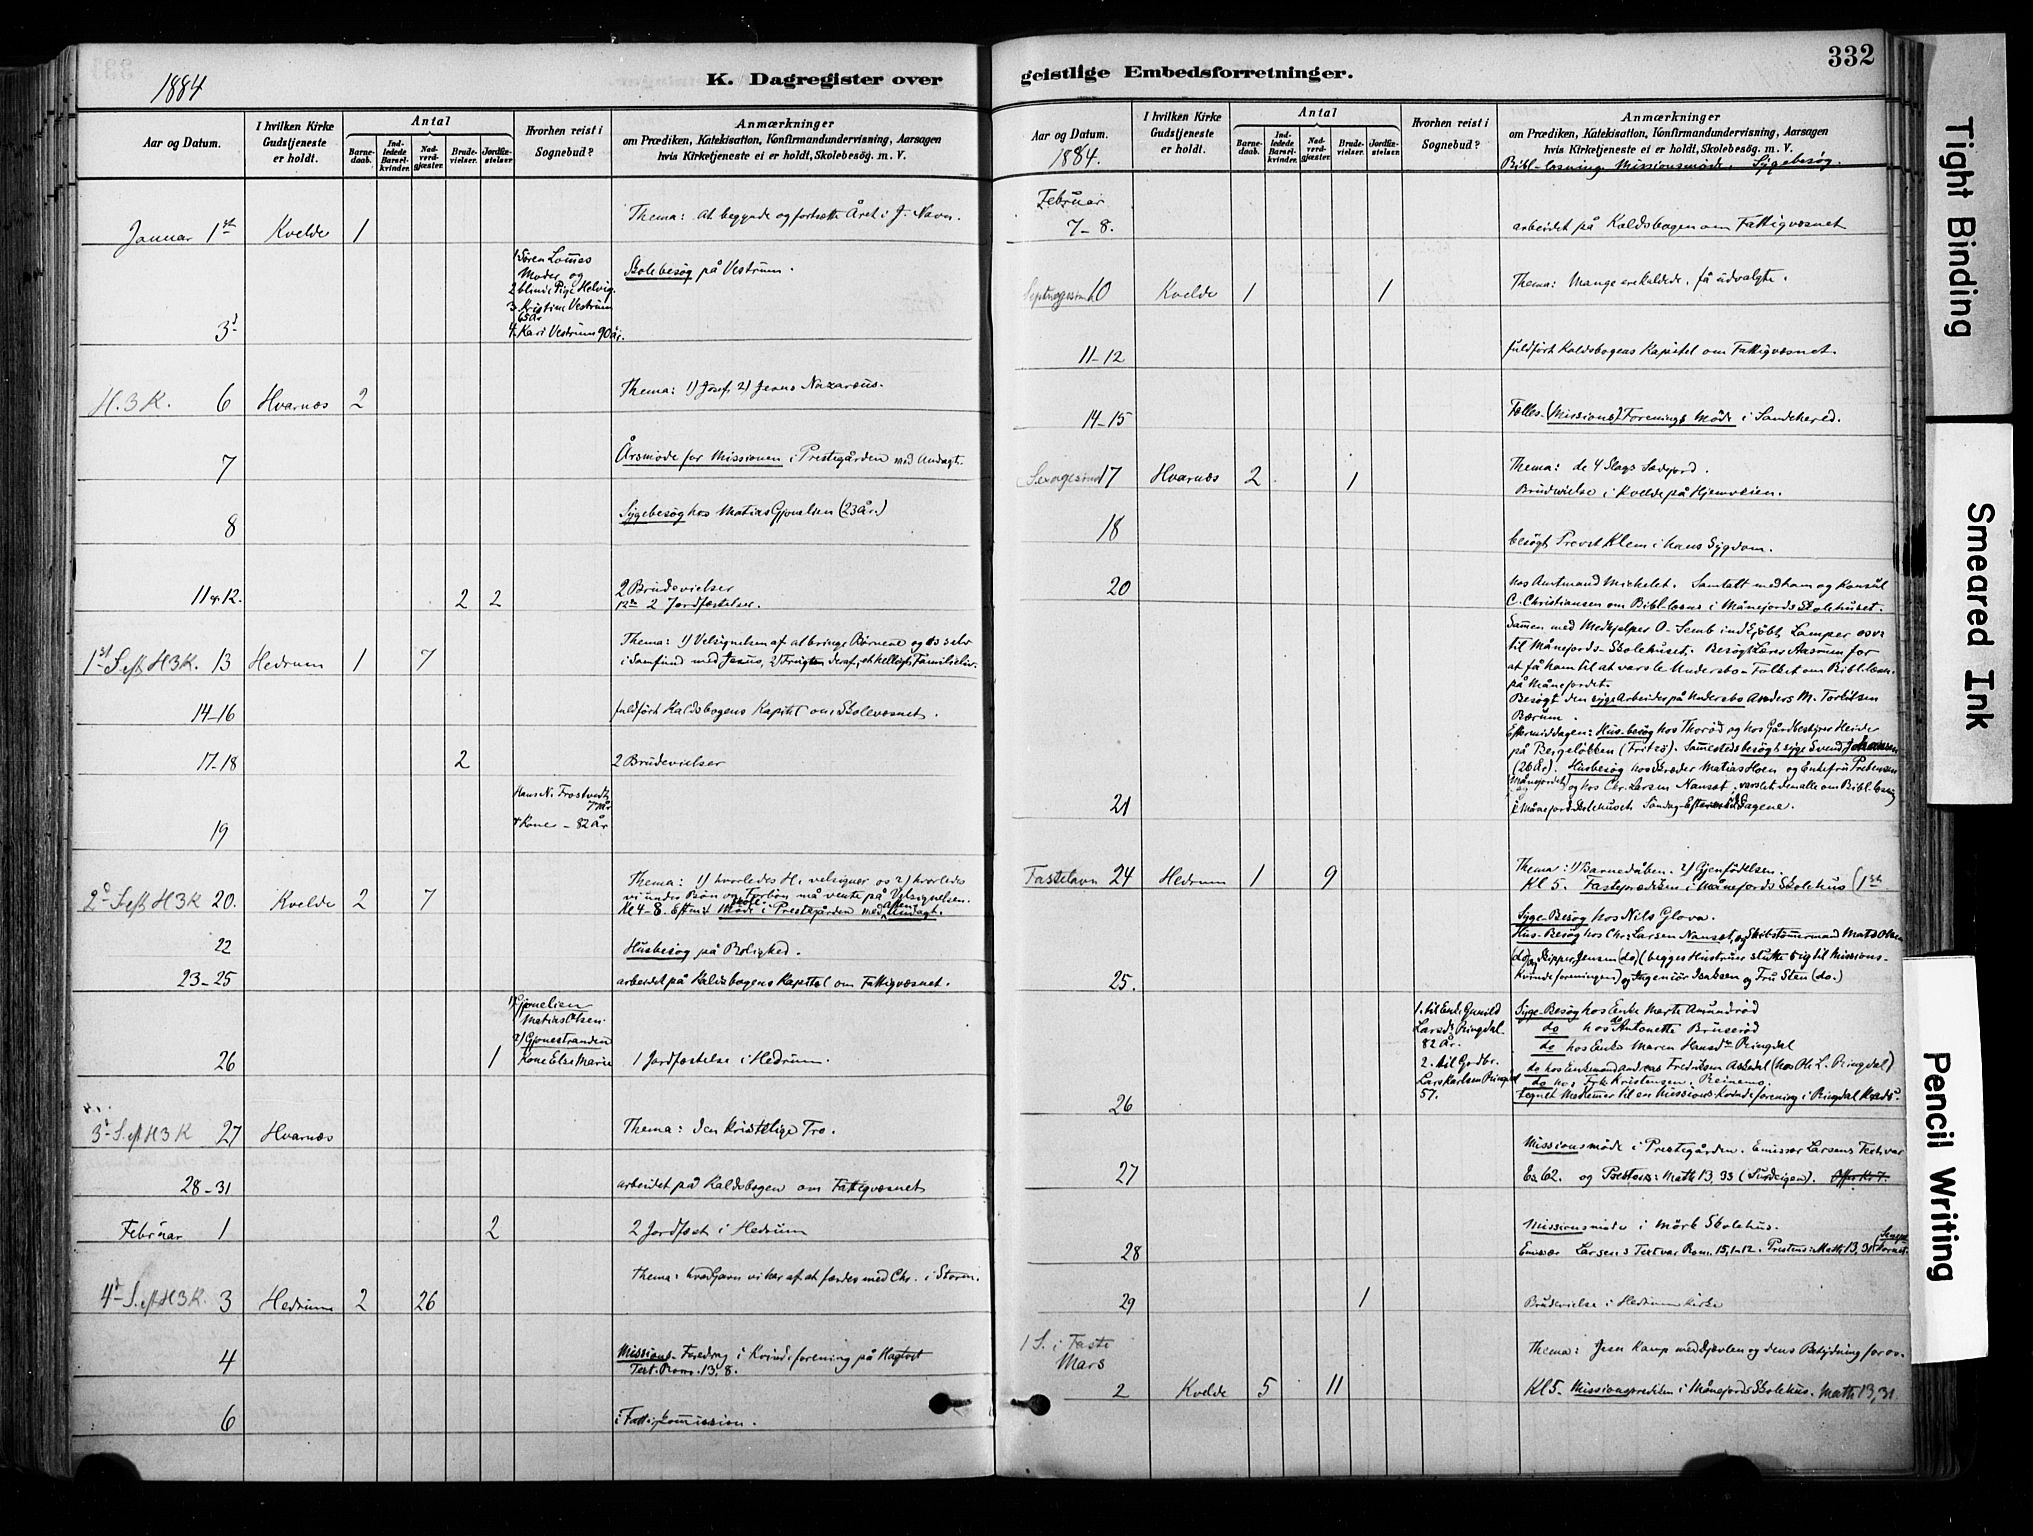 332
1884
K. Dagregister over
geistlige Embedsforretninger.
Aar og Datum.
I hvilken Kirke Gudstjeneste er holdt.
Antal
Barnedaab.
Indledede Barselkvinder.
Nadverdgjæster.
Brudevielser.
Jordfæstelser
Hvorhen reist i Sognebud?
Anmærkninger
om Prædiken, Katekisation, Konfirmandundervisning, Aarsagen
hvis Kirketjeneste ei er holdt, Skolebesøg. m. V.
Januar 1ste Kvelde 1 Thema: at begynde og fortsætte Året i J. Navn.
1 Sören
Moder og
2 blinde Pige Helvig.
3. Kristine Vestrum
65 År
4. Kari Vestrum 90 år.
3d Skolebesøg på Vestrum.
H. 3 K. 6 Hvarnæs 2 Thema: 1) Josef, 2) Jesus Nazaræus.
7 Årsmøde for Missionen i Prestegården med Andagt.
8 Sygebesøg hos Matias Gjonelien (23 år.)
11 og 12. 2 2 2 Brudevielser
12te 2 Jordfæstelser.
1ste S. eft H3K. 13 Hedrum 1 7 Thema: 1) Velsignelsen af at bringe Børnene og os selv
i Samfund med Jesus, 2) Frugten deraf, et helligt Familieliv.
14-16 fuldført Kaldsbogens Kapitel om Skolevæsnet.
17-18 2 2 Brudevielser
Hans N. Frostvedt
& Kone - 82 år
19
2d S. eft H3K 20. Kvelde 2 7 Thema: 1) hvorledes H. velsigner os 2) hvorledes
vi under Bøn og Forbøn må vente på Velsignelsen.
Kl 4-8. Eftmd Møde i Prestegården med Aften Andagt.
22 Husbesøg på Bolighed.
23-25 arbeidet på Kaldsbogens Kapitel om Fattigvæsnet.
1) Gjonelien
Matias Olsen.
2) Gjonestranden
Kone Else Marie
26 1 1 Jordfæstelse i Hedrum.
3d S. eft H3K 27 Hvarnæs Thema: den kristelige Tro.
28-31 arbeidet på Kaldsbogen om Fattigvæsnet
Februar 1 2 2 Jordfæst i Hedrum
4d S. eft H3K. 3 Hedrum 2 26 Thema: hvad Gavn vi har af at færdes med Chr. i Storm.
4 Missions-Foredrag i Kvindeforening på Hagtvet
Text. Rom. 13, 8.
6 i Fattigkommission.
Aar og Datum.
1884.
I hvilken Kirke Gudstjeneste er holdt.
Antal
Barnedaab.
Indledede Barselkvinder.
Nadverdgjæster.
Brudevielser.
Jordfæstelser
Hvorhen reist i Sognebud?
Anmærkninger
om Prædiken, Katekisation, Konfirmandundervisning, Aarsagen
hvis Kirketjeneste ei er holdt, Skolebesøg. m. V.
Bibl-læsning. Missionsmøde. Sygebesøg.
Februar
7-8. arbeidet på Kaldsbogen om Fattigvæsnet
Septuagesima 10 Kvelde 1 1 Thema: Mange ere kaldede, få udvalgte.
11-12 fuldført Kaldsbogens Kapitel om Fattigvæsnet.
14-15 Fælles-(Missions) Forenings Møde i Sandeherred.
Sexagesima 17 Hvarnæs 2 1 Thema: de 4 Slags Sædejord.
Brudevielse i Kvelde på Hjemveien.
18 besøgt Provst Klem i hans Sygdom.
20 hos Amtmand Michelet. Samtalt med ham og Konsul
C. Christiansen om Bibl-læsn i Månejords Skolehuset.
Sammen med Medhjelper O. Semb indkjøbt Lamper
til Månejords-Skolehuset. Besøgt Lærer Aasrum for
at få ham til at varsle Undersbo-Folket om Bibl.læsn.
på Månejordet.
Besøgt den syge Arbeider på Undersbo Anders M. Torbilsen
Bærum.
Eftermiddagen: Husbesøg hos Thorød og hos Gårdbestyrer Heider
på Bergeløbben (Fritzø). Sammesteds besøgt syge Svend Johansen
(26 År). Husbesøg hos Skræder Matias Hoen og Enkefru Pretersen
(Månejordet) og hos Chr. Larsen Nanset; varslet dem alle om Bibl.læsng
21 i Månejords-Skolehuset Søndag-Eftermiddagene.
Fastelavn 24 Hedrum 1 9 Thema: 1) Barnedåben. 2) Gjenfødelsen.
Kl 5. Fasteprædiken i Månejords Skolehus (1ste
Syge-Besøg hos Nils Glova.
Hus-Besøg hos Chr. Larsen Nanset, og Skibstømmermand Mats Olsen
(do) og Skipper Jensen (do) (begges Hustruer slutte sig til Missions-
25. Kvindeforeningen) og Ingeniør Isaksen og Fru Sten (do.)
1. til Enk. Gunild
Larsdr Ringdal
82 År.
2. til Grdbr.
Lars Karlsen Ringdal
57.
Syge-Besøg hos Enke Marte Amundrød
do hos do Antonette Bruserød
do hos Enke Maren Hansdr Ringdal
do hos Enkemand Andreas Fredriksen Askedal (hos Ole L. Ringdal)
do hos Frk Kristensen. Reinemo.
26 tegnet Medlemmer til en Missions Kvindeforening i Ringdal Kreds.
27 Missionsmøde i Prestegården. Emissær Larsens Text var
Es 62. og Prestens: Math 13, 33 (Surdeigen).
28 Missionsmøde i Mørk Skolehus.
Emissær Larsens Text var Rom. 15, 1-12. Prestens: Math 13, 31 (Sennepskornet.
29 1 Brudevielse i Hedrum Kirke
1 S. i Faste
Mars
2 Kvelde 5 11 Thema: Jesu Kamp med Djevlen og dens Betydning for os.
Kl 5. Missionsprediken i Månejords Skolehus. Math 13, 31.
Tight Binding
Smeared Ink
Pencil Writing